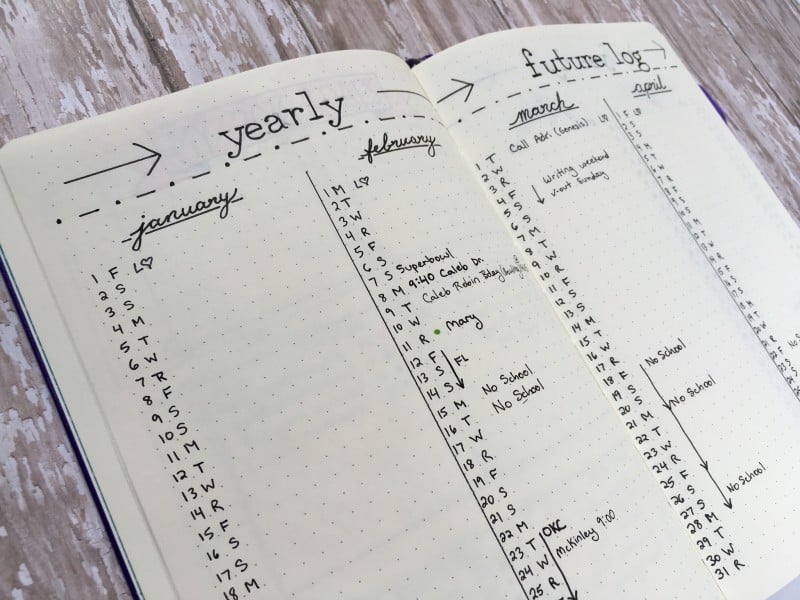 yearly
january
1 F L♡
2 S
3 S
4 M
5 T
6 W
7 R
8 F
9 S
10 S
11 M
12 T
13 W
14 R
15 F
16 S
17 S
18 M
february
1 M L♡
2 T
3 W
4 R
5 F
6 S
7 S Superbowl
8 M 9:40 Caleb Dr.
9 T Caleb Robin
10 W
11 R • mary
12 F
13 S FL
14 S
15 M No School
16 T No School
17 W
18 R
19 F
20 S
21 S
22 M
23 T OKC
24 W McKinley 9:00
25 R
future log
march
Call Adr. (Genesis) L♡
1 T
2 W
3 R Writing weekend
4 F v-out Sunday
5 S
6 S
7 M
8 T
9 W
10 R
11 F
12 S
13 S
14 M
15 T
16 W
17 R No School
18 F
19 S
20 S No School
21 M
22 T
23 W
24 R
25 F
26 S No School
27 S
28 M
29 T
30 W
31 R
april
1 F L♡
2 S
3 S
4 M
5 T
6 W
7 R
8 F
9 S